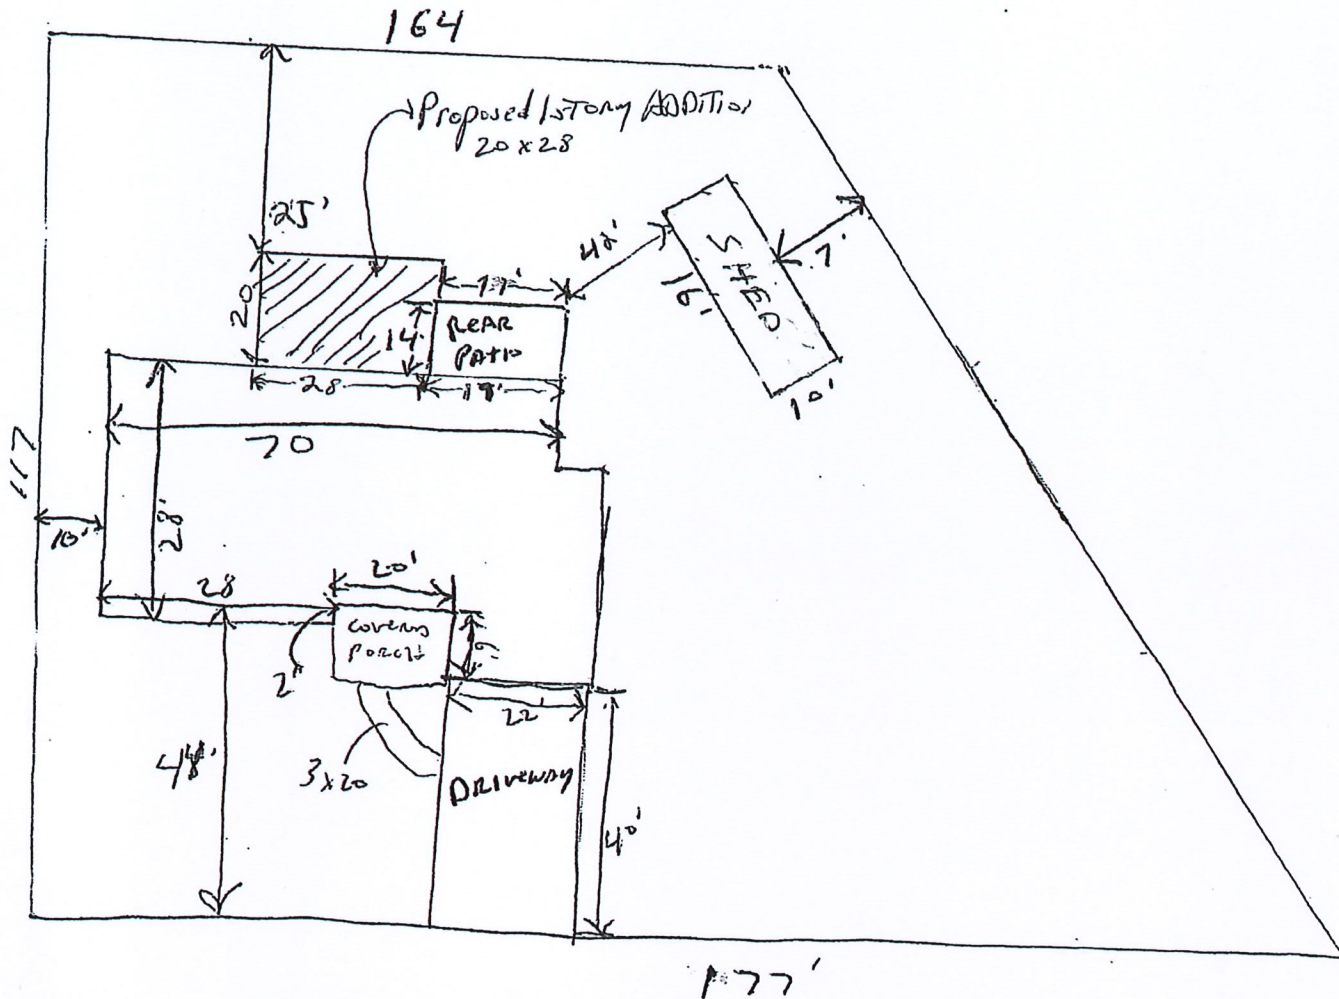 164
Proposed 1 story ADDition
20 x 28
25'
42'
7'
SHED
16'
10'
20
14'
REAR
PATIO
28
19'
70
117
10'
28'
28
20'
covered
PORCH
2'
22'
3x20
DRIVEWAY
48'
40'
177'